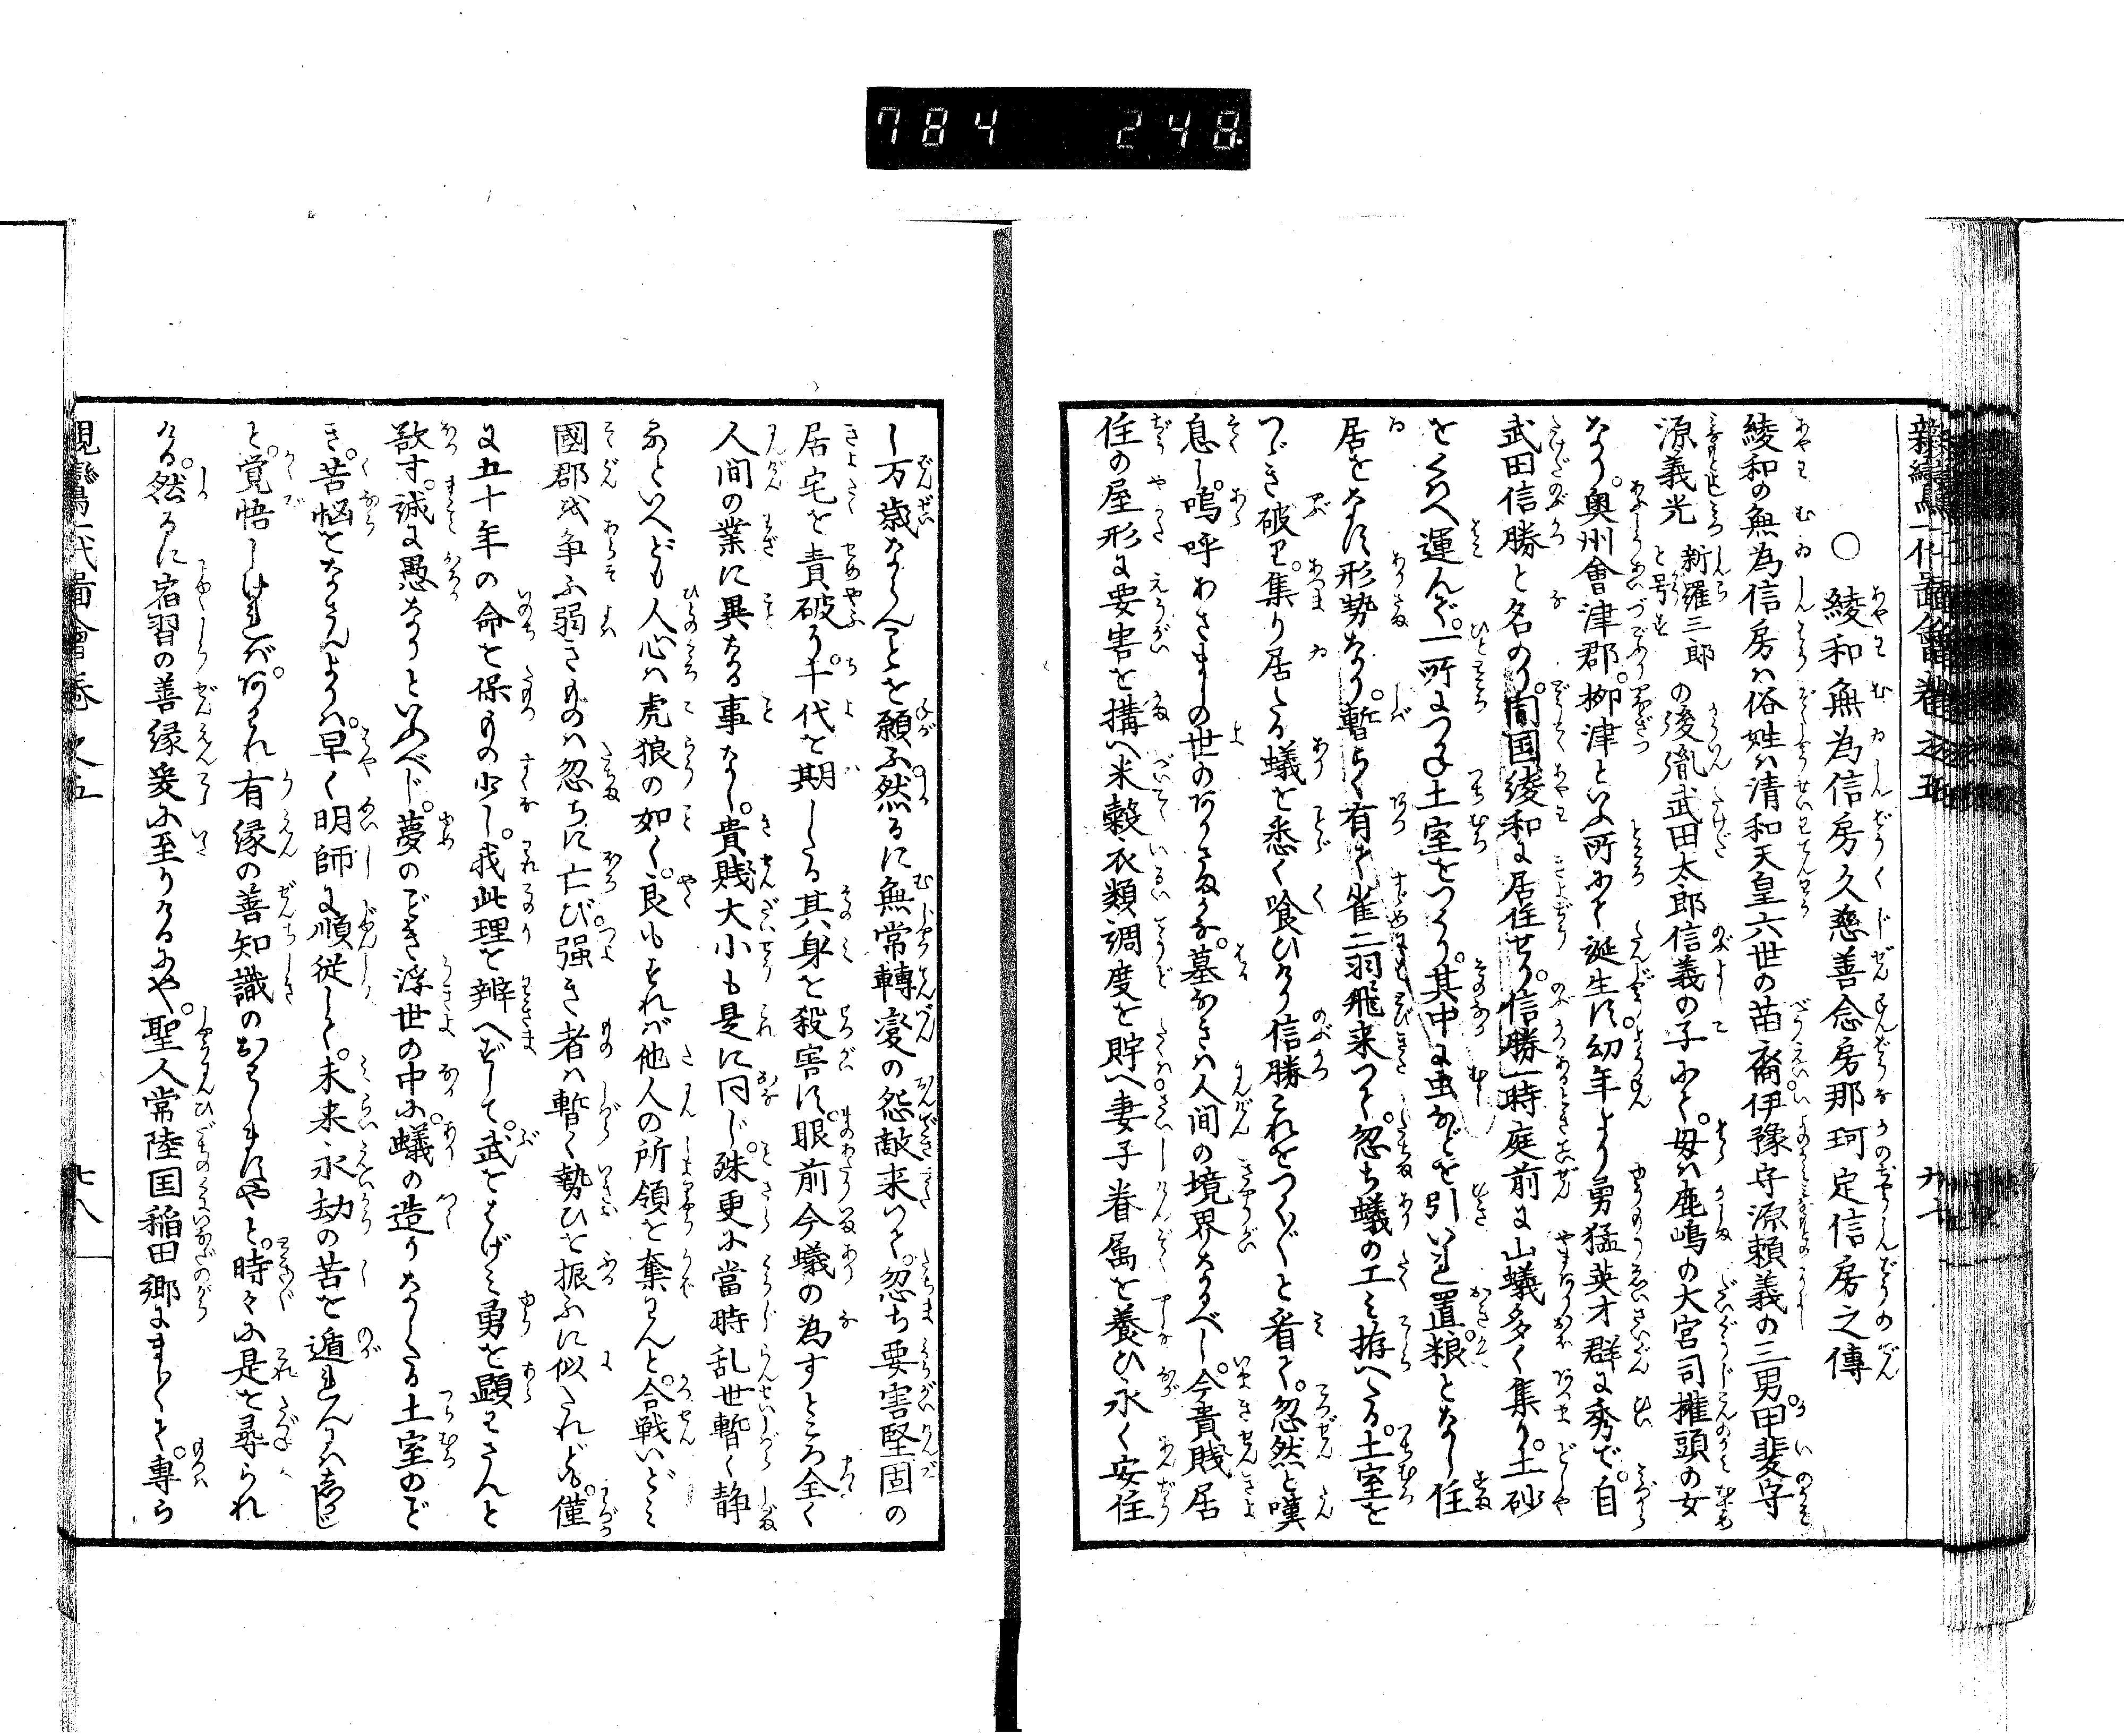 784 248
親鸞一代圖會巻之五
○綾和無為信房久慈善念房那珂定信房之傳
綾和の無為信房ハ俗姓ハ清和天皇六世の苗裔伊豫守源頼義の三男甲斐守
源義光新羅三郎と号すの後胤武田太郎信義の子にて母ハ鹿嶋の大宮司權頭の女
なり奥州會津郡栁津といふ所にて誕生す幼年より勇猛英才群に秀で自
武田信勝と名のり同国綾和に居住せり信勝一時庭前に山蟻多く集り土砂
をくハへ運んで一所につミ土室をつくり其中に虫などを引いれ置粮となし住
居をなす形勢なり暫らく有て雀二羽飛来つて忽ち蟻の工ミ拵へたる土室を
つゞき破り集り居たる蟻を悉く喰ひけり信勝これをつく〴〵と看て忽然と嘆
息し嗚呼あさましの世のありさまかな墓なきハ人間の境界なるべし今貴賤居
住の屋形に要害を搆へ米穀衣類調度を貯へ妻子眷属を養ひ永く安住
し万歳ならんことを願ふ然るに無常轉変の怨敵来いて忽ち要害堅固の
居宅を責破り千代を期したる其身を殺害す眼前今蟻の為すところ全く
人間の業に異なる事なし貴賤大小も是に同じ殊更に當時乱世暫く静
なるといへども人心ハ虎狼の如く良もすれバ他人の所領を奪ハんと合戦いどミ
國郡を争ふ弱きものハ忽ちに亡び强き者ハ暫く勢ひを振ふに似たれども僅
に五十年の命を保もの少し我此理を辨へずして武をとげミ勇を顕ハさんと
欲す誠に愚なりといふべし夢のごとき浮世の中に蟻の造りなしたる土室のごと
き苦悩をなさんよりハ早く明師に順従して未来永劫の苦を遁れんにハ如じ
と覚悟しけれバあハれ有縁の善知識のおハしませやと時々に是を尋られ
ける然るに宿習の善縁爰に至りけるにや聖人常陸国稲田郷にましまして專ら
親鸞一代圖會巻之五
七八